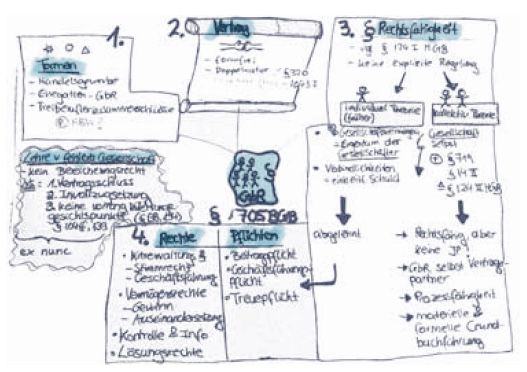 1.
Formen
- Handelsgewerbe
- Ehegatten-GbR
- Freiberuflerzusammenschlüsse
2. Vertrag
- formfrei
- Doppelnatur - § 320
3. § Rechtsfähigkeit
- vgl § 124 I HGB
- keine explizite Regelung
individual Theorie
(früher)
kollektiv Theorie
• Gesellschaftsvermögen
= Eigentum der
Gesellschafter
• Verbindlichkeiten
= einheitl. Schuld
abgelehnt
Gesellschaft
selbst
§ 14 II
§ 124 II HGB
→ Rechtsfähig, aber
keine JP!
→ GbR selbst Vertrags-
partner
→ Prozessfähigkeit
→ materielle &
formelle Grund-
buchführung
Lehre v fehlerh. Gesellschaft
- kein Bereicherungsrecht
1. Vertragsschluss
2. Invollzugsetzung
3. keine vorrang
gesichtspunkte
ex nunc
GbR
§ 705 BGB
4. Rechte
• Mitverwaltung
- Stimmrecht
- Geschäftsführung
• Vermögensrechte
- Gewinn
- Auseinandersetzung
• Kontrolle & Info
• Lösungsrechte
Pflichten
• Beitragspflicht
• Geschäftsführungs-
pflicht
• Treuepflicht